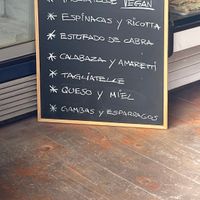 VEGAN
* ESPINACAS Y RICOTTA
* ESTOFADO DE CABRA
* CALABAZA Y AMARETTI
* TAGLIATELLE
* QUESO Y MIEL
* GAMBAS Y ESPARRAGOS